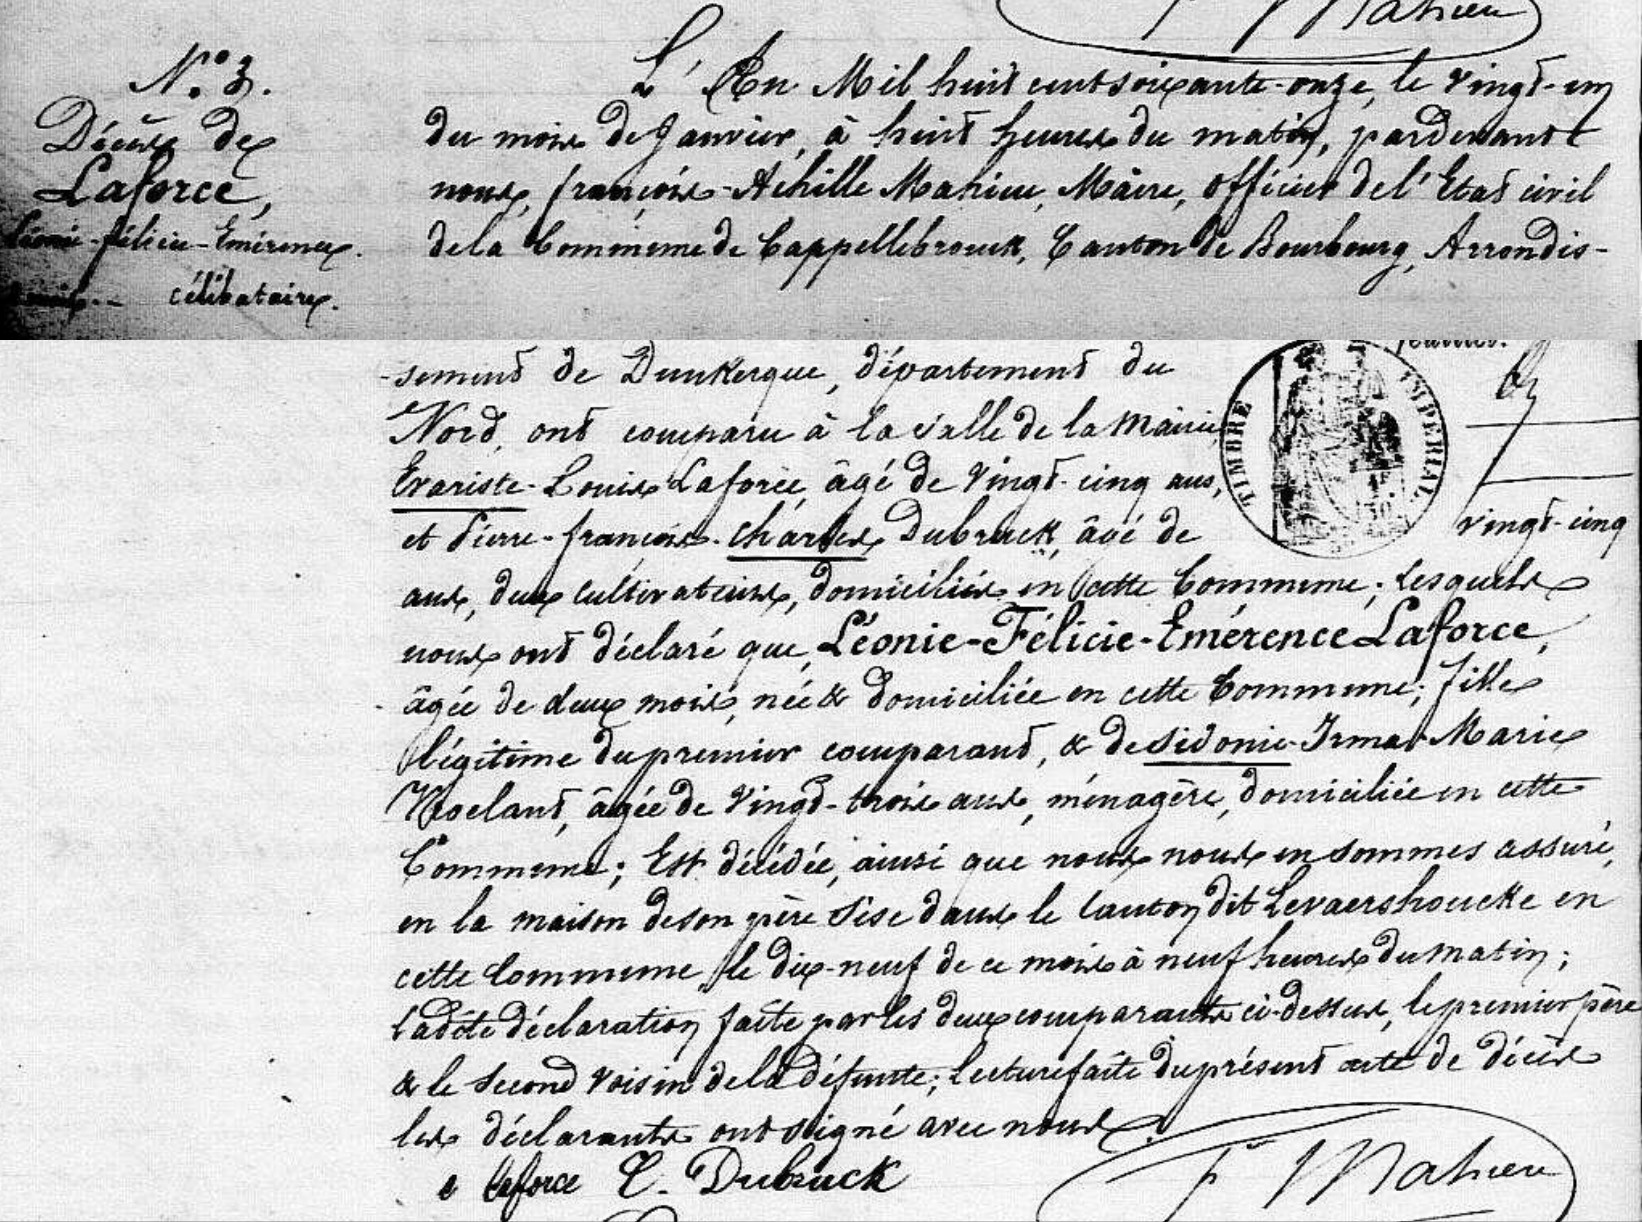 F Mahieu
N.° 3.
Décès de
Laforce,
Léonie-félicie-Emérence
célibataire.
L'An Mil huit cent soixante-onze, le vingt-un
du mois de Janvier, à huit heures du matin, pardevant
nous, françois-Achille Mahieu, Maire, officier de l'Etat civil
de la Commune de Cappellebrouck, Canton de Bourbourg, Arrondis-
-sement de Dunkerque, département du
Nord, ont comparu à la salle de la Mairie
Evariste-Louis Laforce, âgé de vingt-cinq ans,
et Pierre-françois-Charles Dubruck, âgé de vingt-cinq
ans, deux cultivateurs, domiciliés en cette Commune; lesquels
nous ont déclaré que, Léonie-Félicie-Emérence Laforce,
âgée de deux mois, née & domiciliée en cette Commune; fille
légitime du premier comparant, & de Sidonie-Irma-Marie
âgée de vingt-trois ans, ménagère, domiciliée en cette
Commune; Est décédée, ainsi que nous nous en sommes assuré,
en la maison de son père sise dans le Canton dit Levaershoucke en
cette Commune, le dix-neuf de ce mois à neuf heures du matin;
Ladite déclaration faite par les deux comparants ci-dessus, le premier père
& le second voisin de la défunte; lecture faite du présent acte de décès
les déclarants ont signé avec nous.
e Laforce C. Dubruck
F Mahieu
TIMBRE IMPERIAL